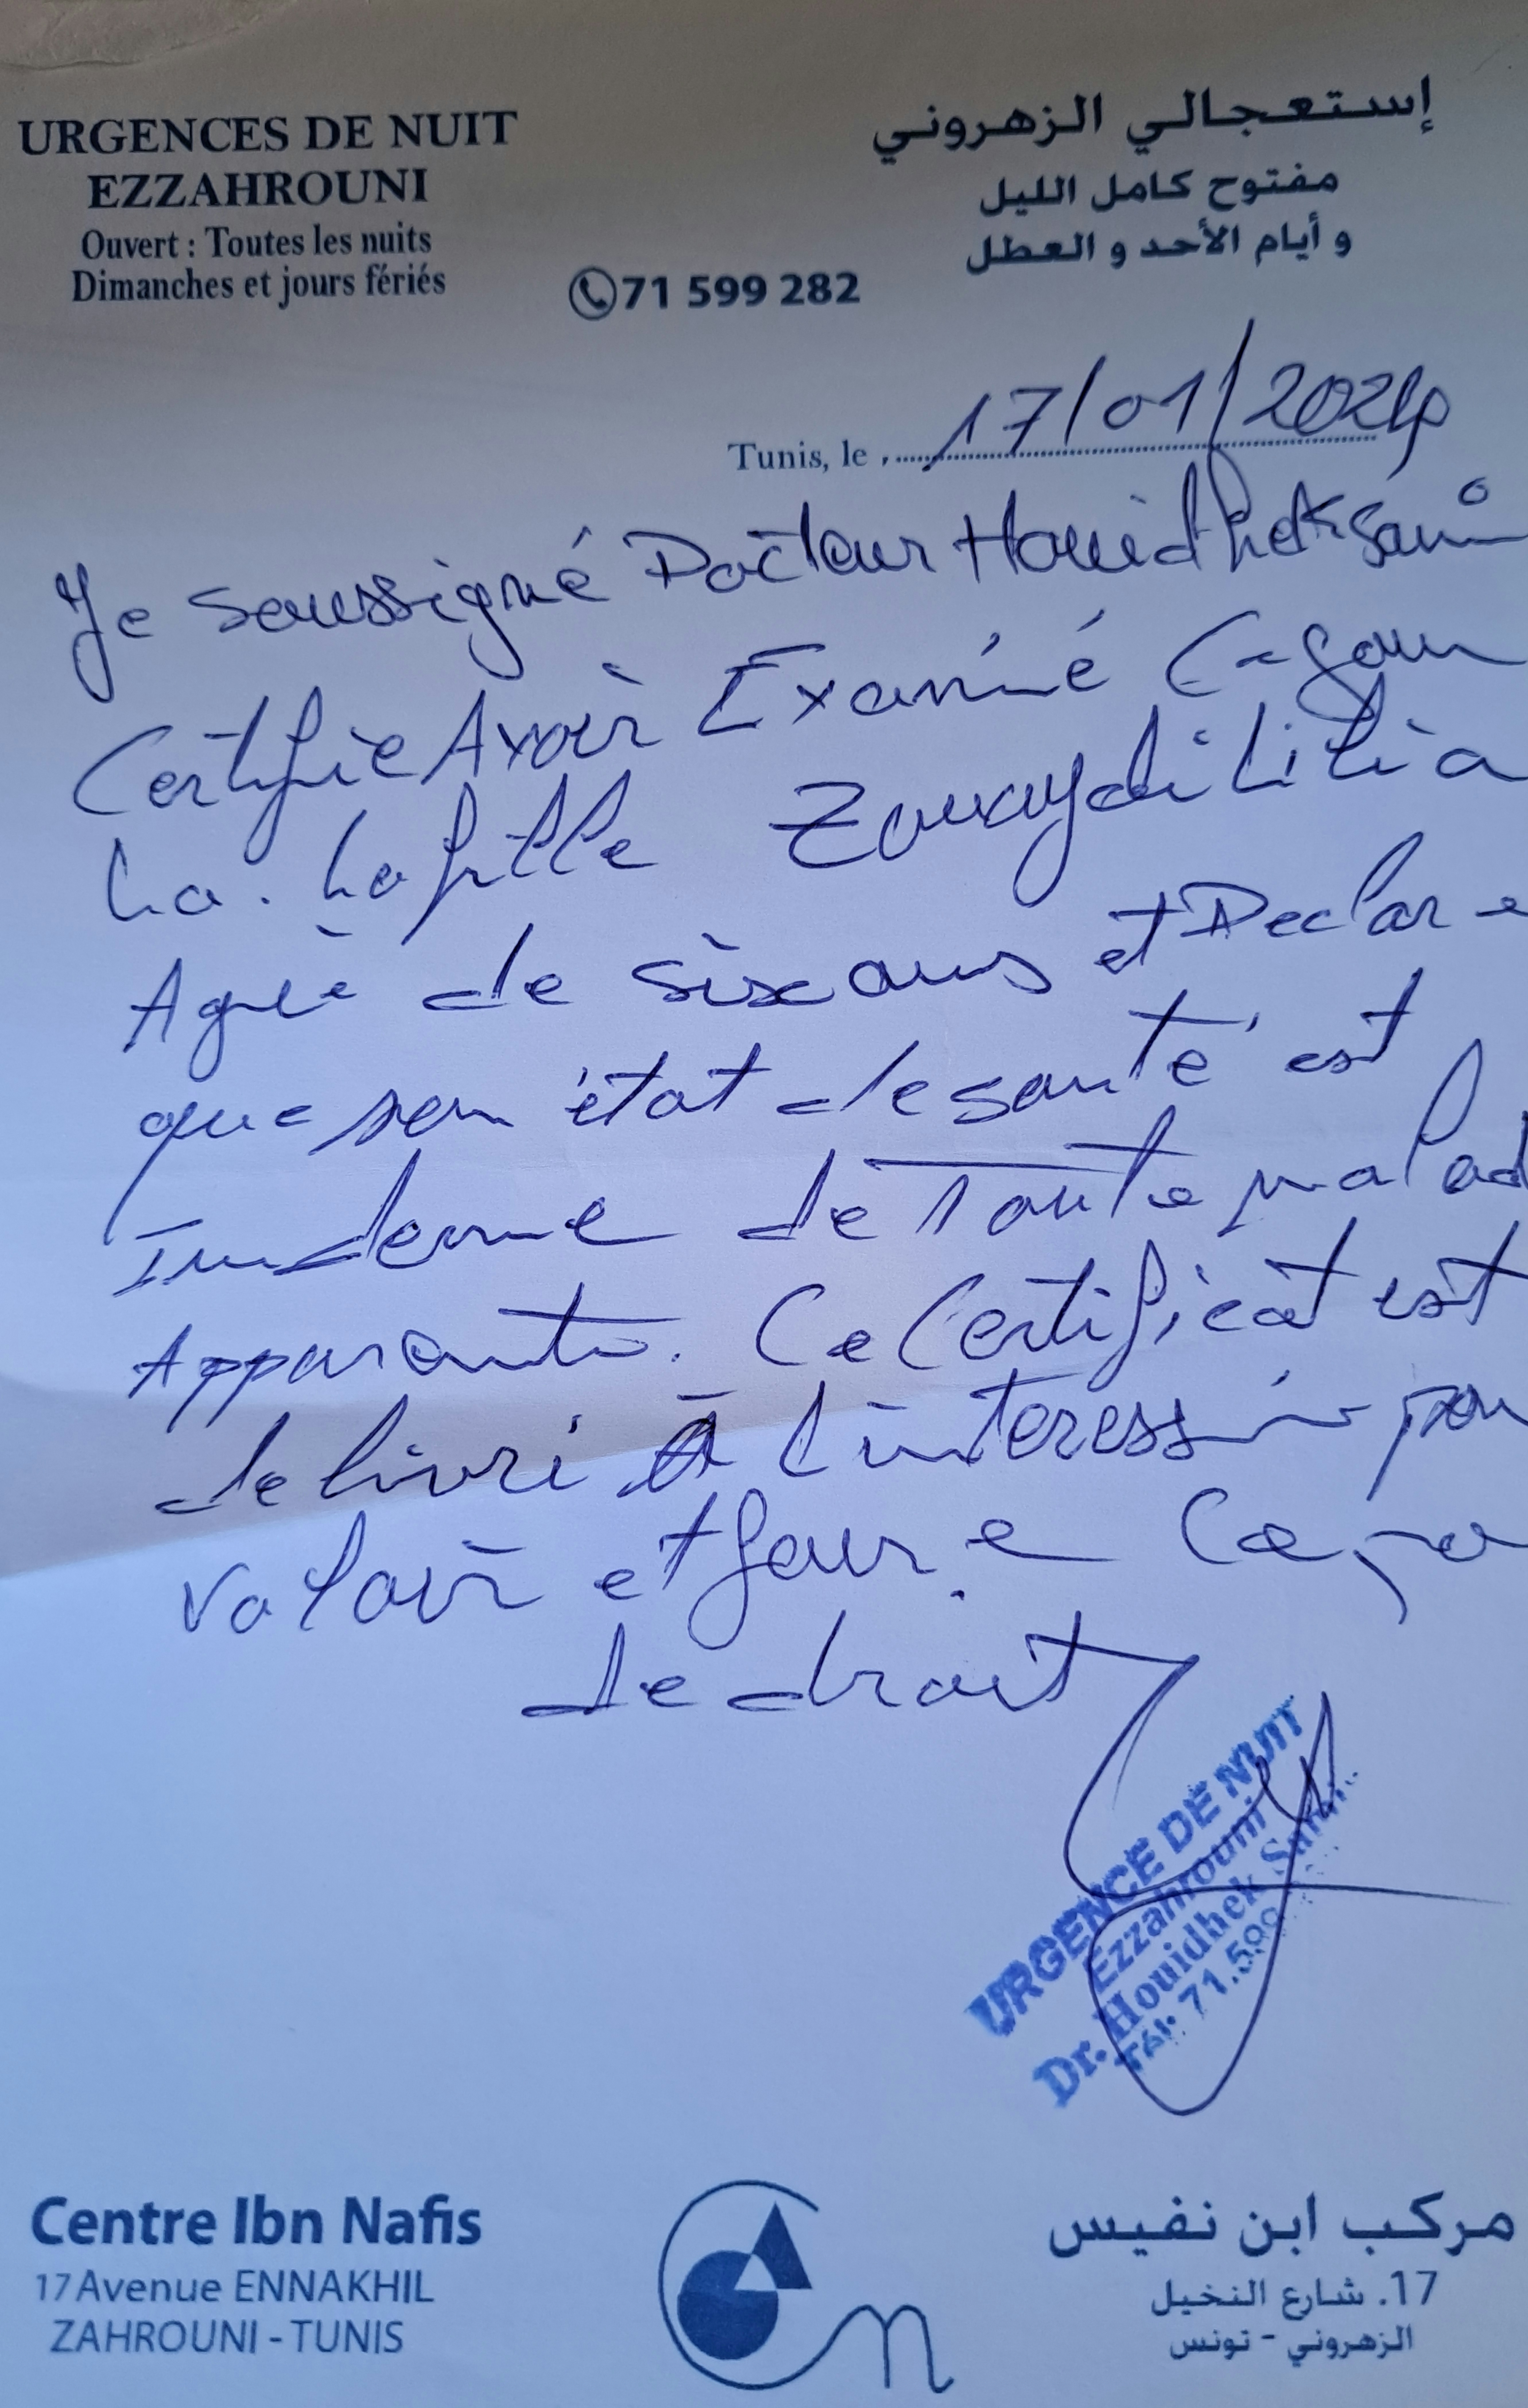 URGENCES DE NUIT
EZZAHROUNI
Ouvert : Toutes les nuits
Dimanches et jours fériés
إستعجالي الزهروني
مفتوح كامل الليل
و أيام الأحد و العطل
71 599 282
Tunis, le 17/01/2024
Je soussigné Docteur Houidhek Sami
Certifie Avoir Examiné Ce jour
La . La fille
Agée de six ans et Declare
que son état de santé est
Indemne de Toute malad
Apparante. Ce Certificat est
delivré à l'interessée pou
valoir et faire Ce
de droit
URGENCE DE NUIT
Ezzahrouni
Dr. Houidhek Sami
Tél: 71.599
Centre Ibn Nafis
17 Avenue ENNAKHIL
ZAHROUNI - TUNIS
مركب ابن نفيس
17. شارع النخيل
الزهروني - تونس